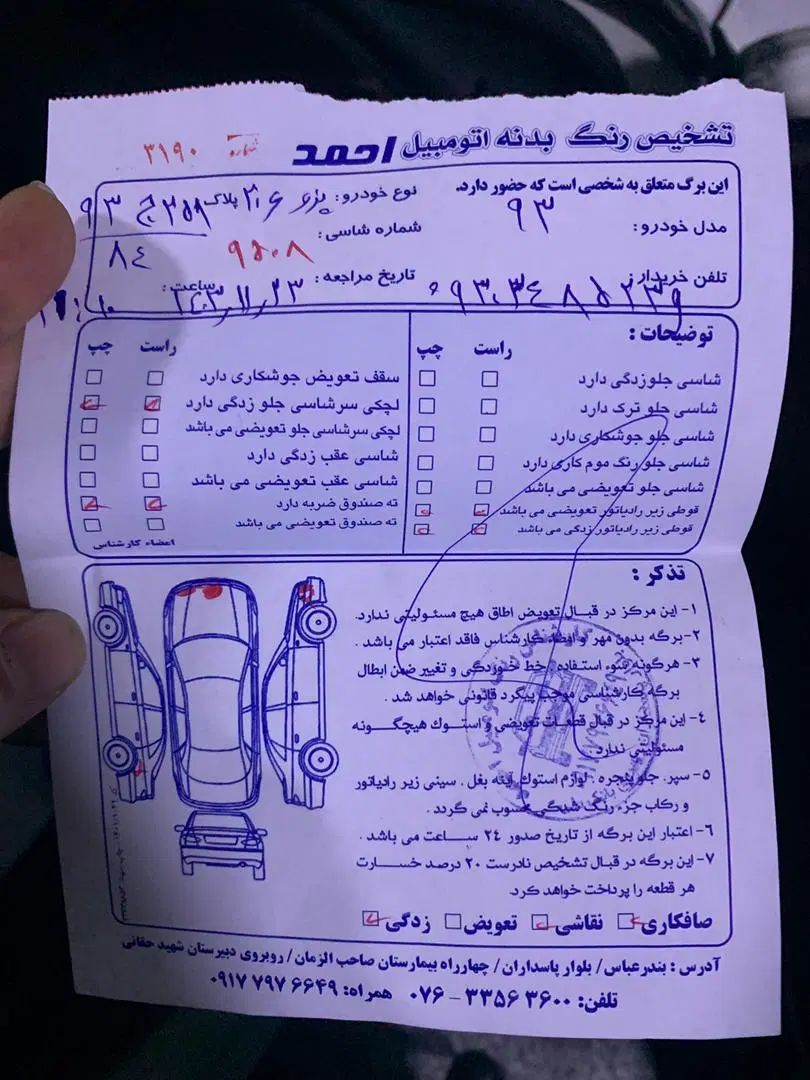 تشخیص رنگ بدنه اتومبیل احمد
شماره ۳۱۹۰
این برگ متعلق به شخصی است که حضور دارد.
نوع خودرو: پژو ۲۰۶ پلاک: ۹۳ ج ۳۵۸
۸۴
مدل خودرو: ۹۳
شماره شاسی: ۹۵۰۸
تلفن خریدار:
تاریخ مراجعه:
ساعت:
توضیحات:
راست چپ
شاسی جلوزدگی دارد
شاسی جلو ترک دارد
شاسی جلو جوشکاری دارد
شاسی جلو رنگ موم کاری دارد
شاسی جلو تعویضی می باشد
قوطی زیر رادیاتور تعویضی می باشد
قوطی زیر رادیاتور زدگی می باشد
راست چپ
سقف تعویض جوشکاری دارد
لچکی سرشاسی جلو زدگی دارد
لچکی سرشاسی جلو تعویضی می باشد
شاسی عقب زدگی دارد
شاسی عقب تعویضی می باشد
ته صندوق ضربه دارد
ته صندوق تعویضی می باشد
اعضاء کارشناس
تذکر:
۱- این مرکز در قبال تعویض اطاق هیچ مسئولیتی ندارد.
۲- برگه بدون مهر و امضاء کارشناس فاقد اعتبار می باشد.
۳- هرگونه سوء استفاده، خط خوردگی و تغییر ضمن ابطال
برگه کارشناسی موجب پیگرد قانونی خواهد شد.
۴- این مرکز در قبال قطعات تعویضی و استوک هیچگونه
مسئولیتی ندارد.
۵- سپر، جلو پنجره، لوازم استوک، آینه بغل، سینی زیر رادیاتور
و رکاب جزء رنگ شدگی محسوب نمی گردد.
۶- اعتبار این برگه از تاریخ صدور ۲۴ ساعت می باشد.
۷- این برگه در قبال تشخیص نادرست ۲۰ درصد خسارت
هر قطعه را پرداخت خواهد کرد.
صافکاری نقاشی تعویض زدگی
آدرس: بندرعباس / بلوار پاسداران / چهارراه بیمارستان صاحب الزمان / روبروی دبیرستان شهید حقانی
تلفن: ۳۳۵۶۳۶۰۰ - ۰۷۶ همراه: ۰۹۱۷۷۹۷۶۶۴۹